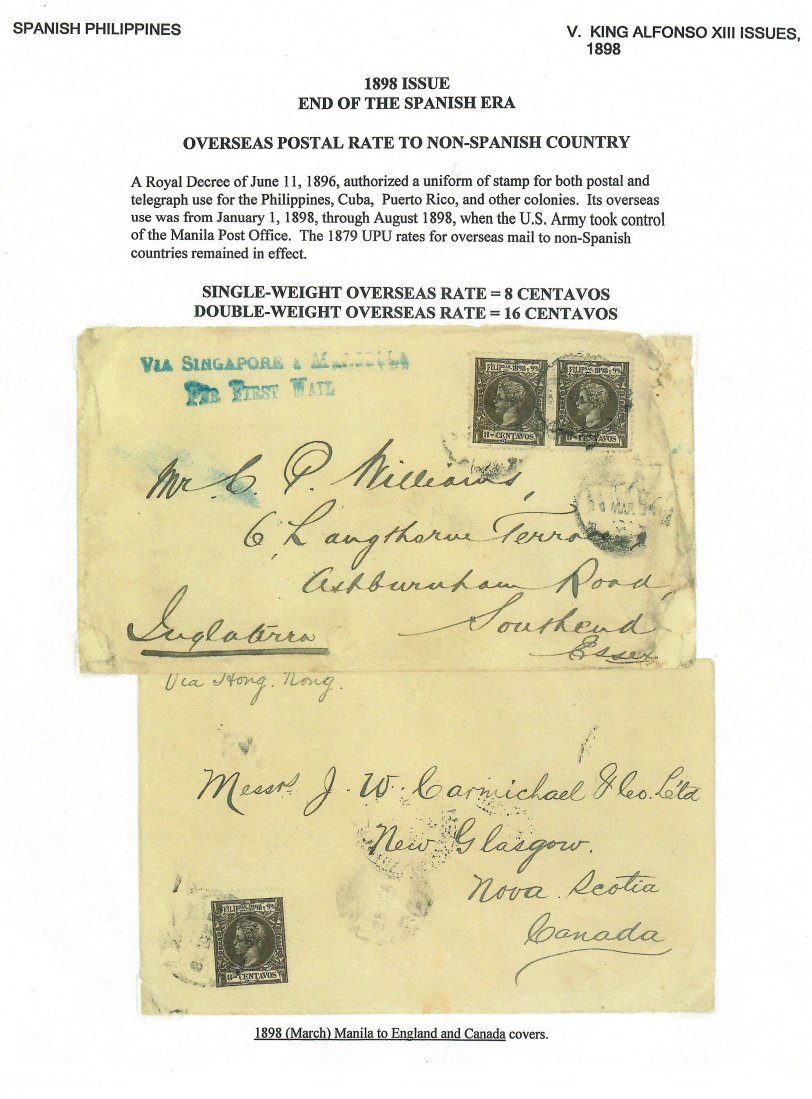 SPANISH PHILIPPINES
V. KING ALFONSO XIII ISSUES,
1898
1898 ISSUE
END OF THE SPANISH ERA
OVERSEAS POSTAL RATE TO NON-SPANISH COUNTRY
A Royal Decree of June 11, 1896, authorized a uniform of stamp for both postal and
telegraph use for the Philippines, Cuba, Puerto Rico, and other colonies. Its overseas
use was from January 1, 1898, through August 1898, when the U.S. Army took control
of the Manila Post Office. The 1879 UPU rates for overseas mail to non-Spanish
countries remained in effect.
SINGLE-WEIGHT OVERSEAS RATE = 8 CENTAVOS
DOUBLE-WEIGHT OVERSEAS RATE = 16 CENTAVOS
VIA SINGAPORE
FIRST MAIL
FILIPNAS 1898 Y 99
8 - CENTAVOS
FILIPNAS 1898 Y 99
8 - CENTAVOS
Mr C. P. Williams,
6 Langthorne Terrace
Ashburnham Road,
Southend
Essex
Inglaterra
Via Hong. Kong.
Messrs J. W. Carmichael & Co. Ltd
New Glasgow.
Nova Scotia
Canada
FILIPNAS 1898 Y 99
8 - CENTAVOS
1898 (March) Manila to England and Canada covers.